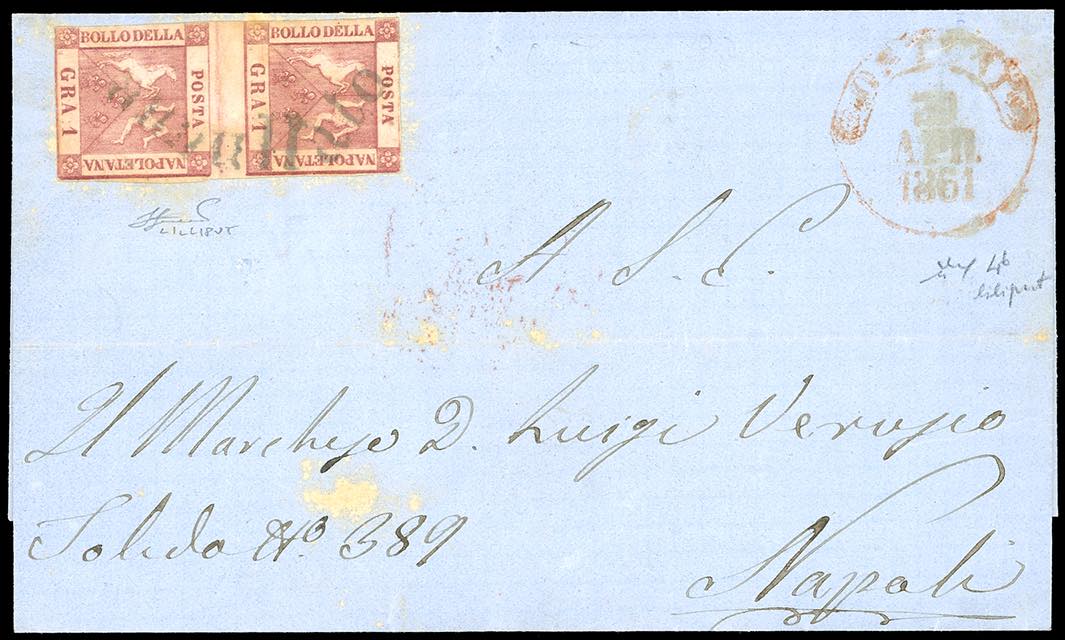 BOLLO DELLA
POSTA
NAPOLETANA
GRA 1
BOLLO DELLA
POSTA
NAPOLETANA
GRA 1
Annullato
APR.
1861
LILLIPUT
4b
liliput
A S. E.
Il Marchese D. Luigi Verusio
Toledo No. 389
Napoli